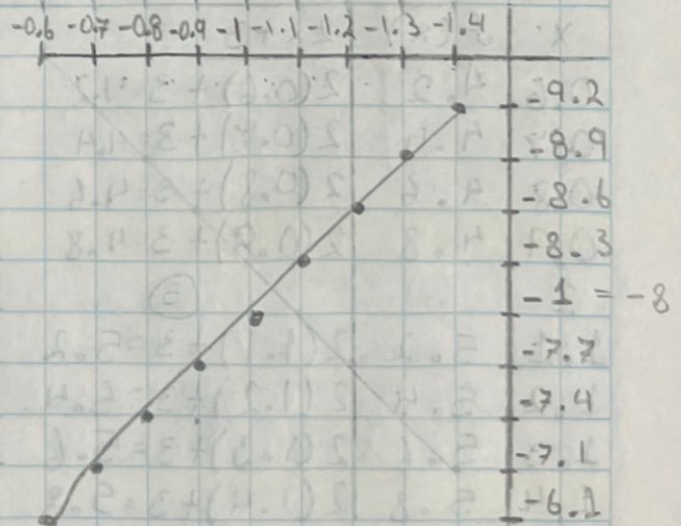 -0.6 -0.7 -0.8 -0.9 -1 -1.1 -1.2 -1.3 -1.4
-9.2
-8.9
-8.6
-8.3
-1 = -8
-7.7
-7.4
-7.1
-6.1